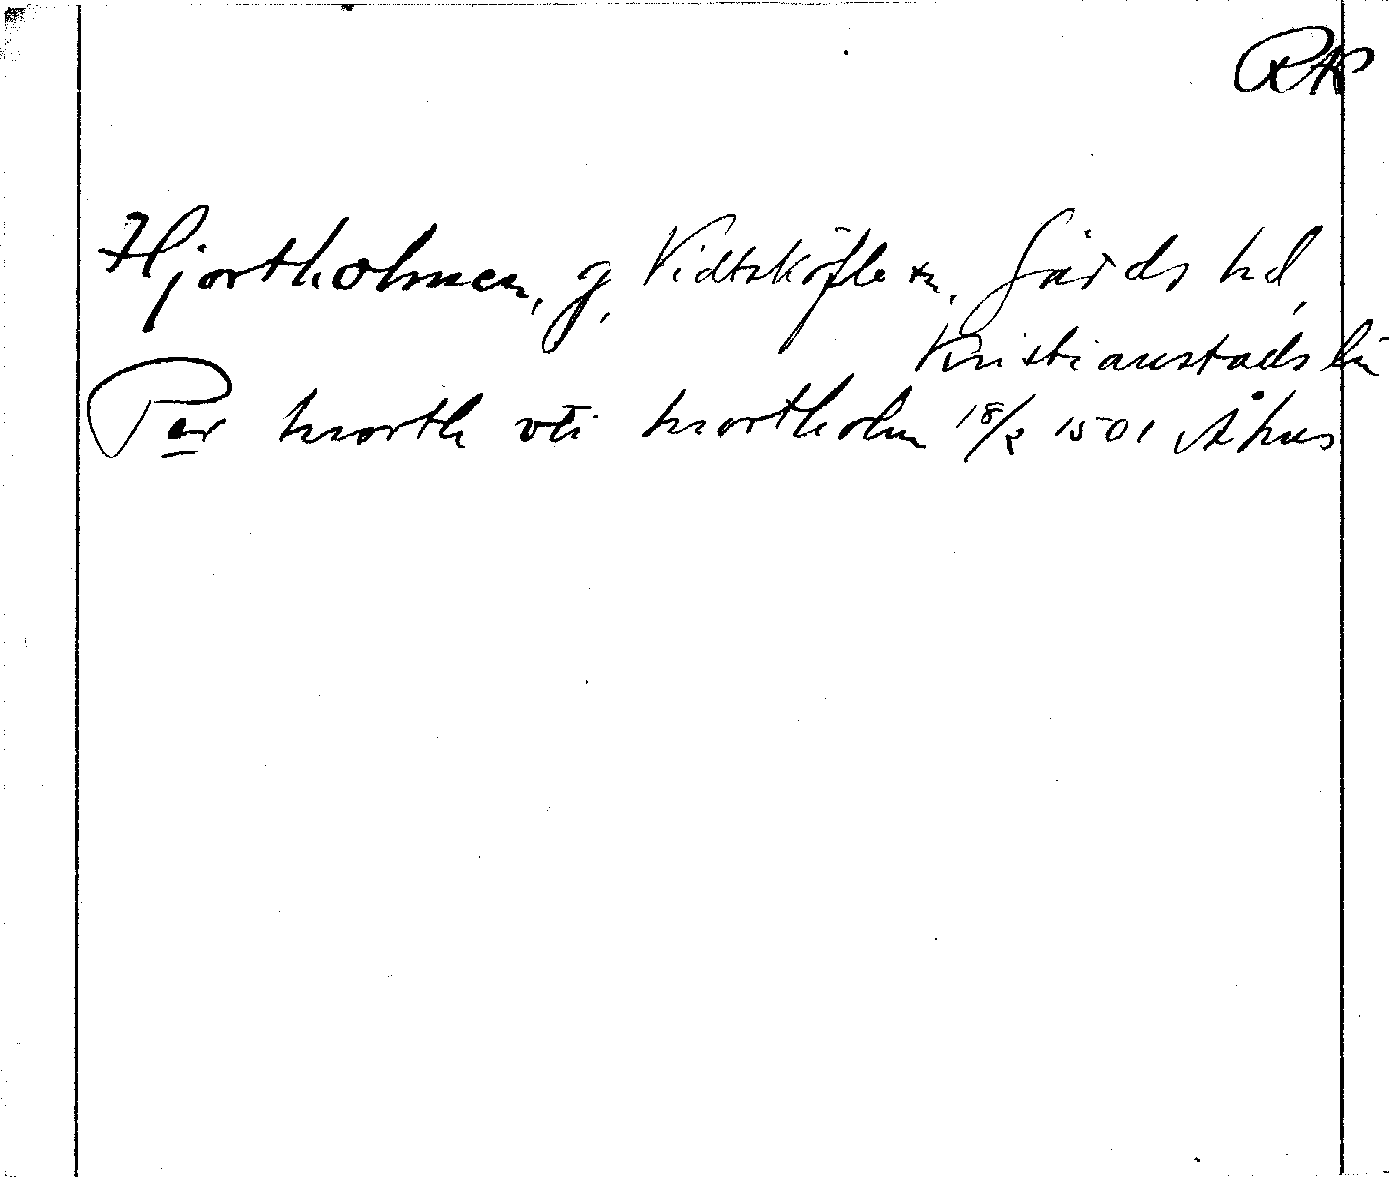 RAP
Hjortholmen, g, Vidtsköfle sn, Gärds hd,
Kristianstads län
Per hiorth vti hiortholm 18/2 1501 Åhus